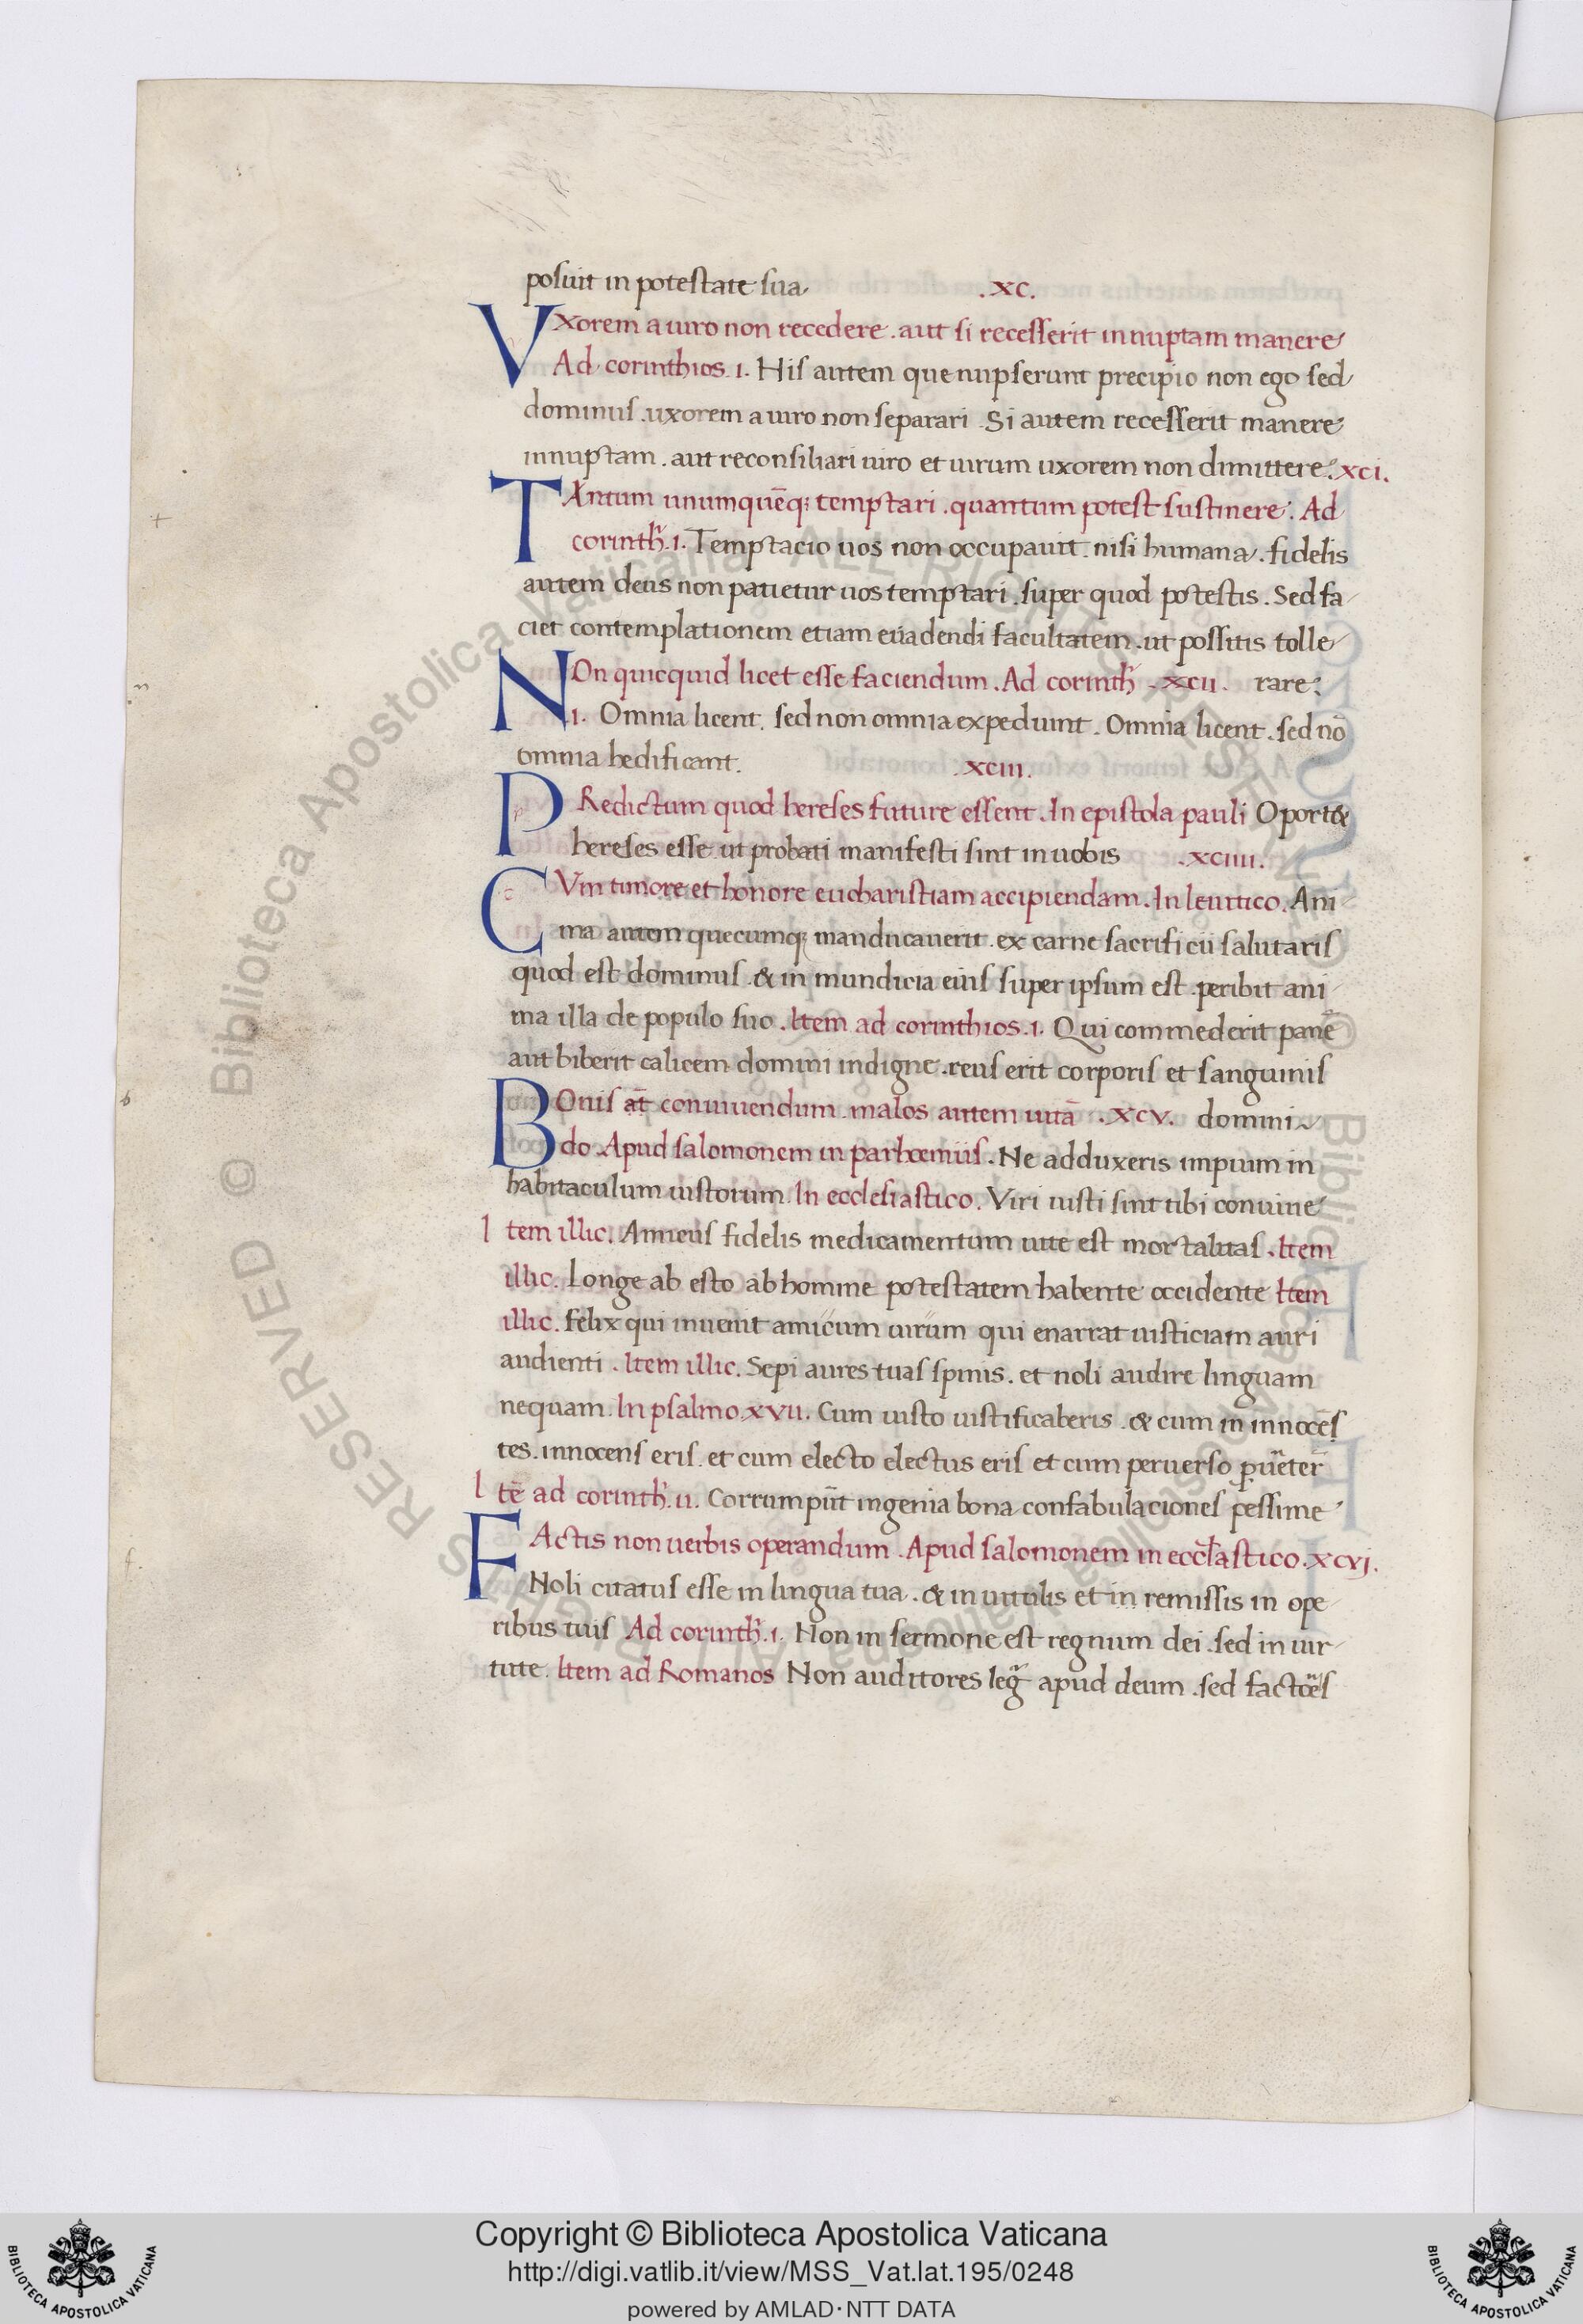 posuit in potestate sua .XC.
VXorem a uiro non recedere . aut si recesserit innuptam manere
Ad corinthios .I. His autem que nupserunt precipio non ego sed
dominus . uxorem a uiro non separari . Si autem recesserit manere
innuptam . aut reconsiliari uiro et uirum uxorem non dimittere. XCI.
TAntum unumquēq; temptari . quantum potest sustinere. Ad
corinth̄.I. Temptacio uos non occupauit . nisi humana . fidelis
autem deus non patietur uos temptari . super quod potestis . Sed fa
ciet contemplationem etiam euadendi facultatem . ut possitis tolle
NOn quicquid licet esse faciendum . Ad corinth̄ . XCII. rare.
I. Omnia licent . sed non omnia expediunt . Omnia licent . sed nō
omnia hedificant. .XCIII.
PRedictum quod hereses future essent . In epistola pauli Oport&
hereses esse . ut probati manifesti sint in uobis .XCIIII.
CVm timore et honore eucharistiam accipiendam . In leuitico . Ani
ma autem quecumq; manducauerit . ex carne sacrificii salutaris
quod est dominus . & in mundicia eius super ipsum est . peribit ani
ma illa de populo suo . Item ad corinthios .I. Qui commederit panē
aut biberit calicem domini indigne . reus erit corporis et sanguinis
BOnis at̄ conuiuendum . malos autem uitā .XCV. domini
do . Apud salomonem in parhoemiis . Ne adduxeris impium in
habitaculum iustorum . In ecclesiastico . Viri iusti sint tibi conuiue
Item illic. Amicus fidelis medicamentum uite est mortalitas . Item
illic. Longe ab esto ab homine potestatem habente occidente Item
illic. felix qui inuenit amicum uirum qui enarrat iusticiam auri
audienti . Item illic. Sepi aures tuas spinis . et noli audire linguam
nequam. In psalmo .XVII. Cum iusto iustificaberis . & cum in innocēs
tes . innocens eris . et cum electo electus eris et cum peruerso
Itē ad corinth̄.II. Corrumpūt ingenia bona confabulaciones pessime
FActis non uerbis operandum . Apud salomonem in eccl̄astico . XCVI.
Noli citatus esse in lingua tua . & in utilis et in remissis in ope
ribus tuis Ad corinth̄.I. Non in sermone est regnum dei . sed in uir
tute . Item ad Romanos Non auditores leg̃ apud deum . sed
Copyright © Biblioteca Apostolica Vaticana
http://digi.vatlib.it/view/MSS_Vat.lat.195/0248
powered by AMLAD·NTT DATA
BIBLIOTECA APOSTOLICA VATICANA
BIBLIOTECA APOSTOLICA VATICANA
© Biblioteca Apostolica Vaticana ALL RIGHTS RESERVED